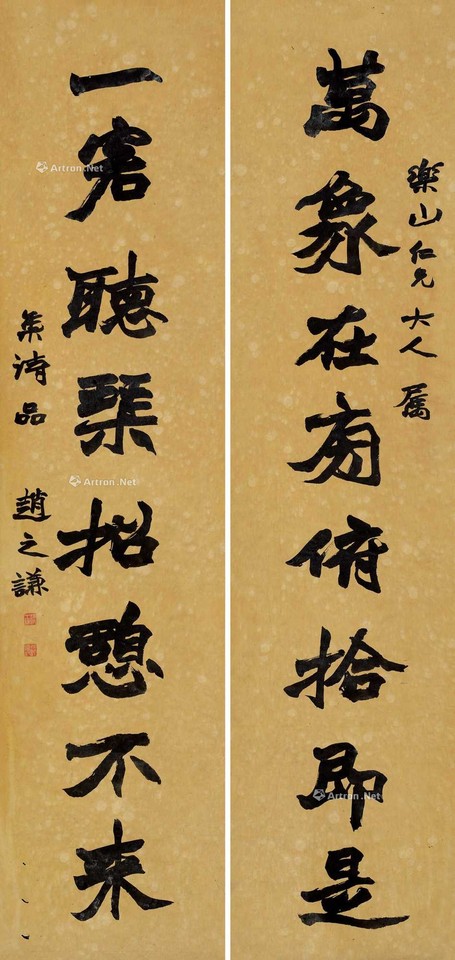 萬象在旁俯拾即是
樂山仁兄大人屬
一客聽琴招憩不来
集詩品 趙之謙
Artron.Net
Artron.Net
Artron.Net